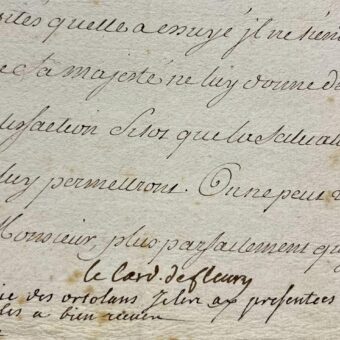 tés qu'elle a essuyé il ne tien
e Sa majesté ne luy donne de
tisfaction Sitost que la Situati
luy permettront. On ne peut
Monsieur, plus parfaitement qu
le Card. de fleury
des ortolans Je les ay presentées
les a bien receu